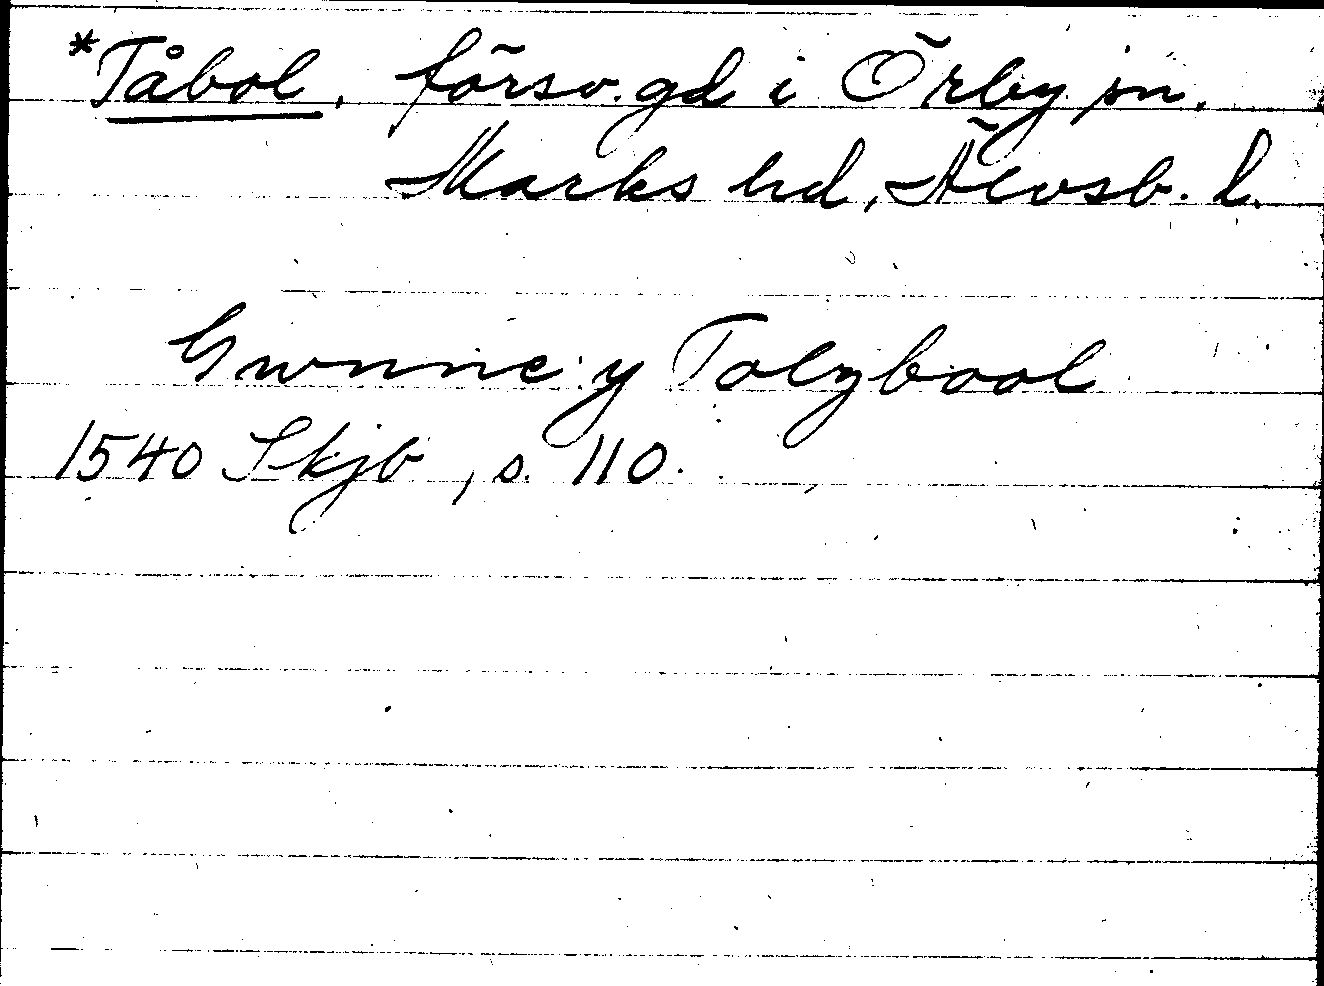 *Tåbol, försv. gd i Örby sn.
Marks hd, Älvsb. l.
Gwnne y Tolzbool
1540 Skjb, s. 110.